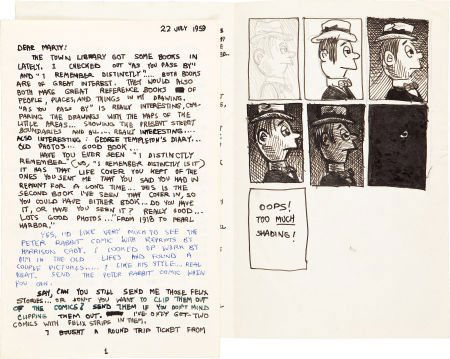 22 JULY 1959
DEAR MARTY!
THE TOWN LIBRARY GOT SOME BOOKS IN
LATELY. I CHECKED OUT "AS YOU PASS BY"
AND "I REMEMBER DISTINCTLY"... BOTH BOOKS
ARE OF GREAT INTEREST. THEY WOULD ALSO
BOTH MAKE GREAT REFERENCE BOOKS OF
PEOPLE, PLACES, AND THINGS IN MY DRAWING.
"AS YOU PASS BY" IS REALLY INTERESTING, COM-
PARING THE DRAWINGS WITH THE MAPS OF THE
LITTLE AREAS... SHOWING THE PRESENT STREET
BOUNDARIES AND ALL... REALLY INTERESTING...
ALSO INTERESTING: GEORGE TEMPLETON'S DIARY...
OLD PHOTOS... GOOD BOOK...
HAVE YOU EVER SEEN "I DISTINCTLY
REMEMBER" (NO, "I REMEMBER DISTINCTLY" IS IT)
IT HAS THAT LIFE COVER YOU KEPT OF THE
ONES YOU SENT ME THAT YOU SAID YOU HAD IN
REPRINT FOR A LONG TIME... THIS IS THE
SECOND BOOK I'VE SEEN THAT COVER IN, SO
YOU COULD HAVE EITHER BOOK... DO YOU HAVE
IT, OR HAVE YOU SEEN IT? REALLY GOOD...
LOTS GOOD PHOTOS... "FROM 1918 TO PEARL
HARBOR."
YES, I'D LIKE VERY MUCH TO SEE THE
PETER RABBIT COMIC WITH REPRINTS BY
HARRISON CADY. I LOOKED UP WORK BY
HIM IN THE OLD LIFES AND FOUND A
COUPLE PICTURES.... I LIKE HIS STYLE... REAL
NEAT. SEND THE PETER RABBIT COMIC WHEN
YOU CAN.
SAY, CAN YOU STILL SEND ME THOSE FELIX
STORIES... OR DON'T YOU WANT TO CLIP THEM OUT
OF THE COMICS? SEND THEM IF YOU DON'T MIND
CLIPPING THEM OUT. I'VE ONLY GOT TWO
COMICS WITH FELIX STRIPS IN THEM.
I BOUGHT A ROUND TRIP TICKET FROM
1
OOPS!
TOO MUCH
SHADING!